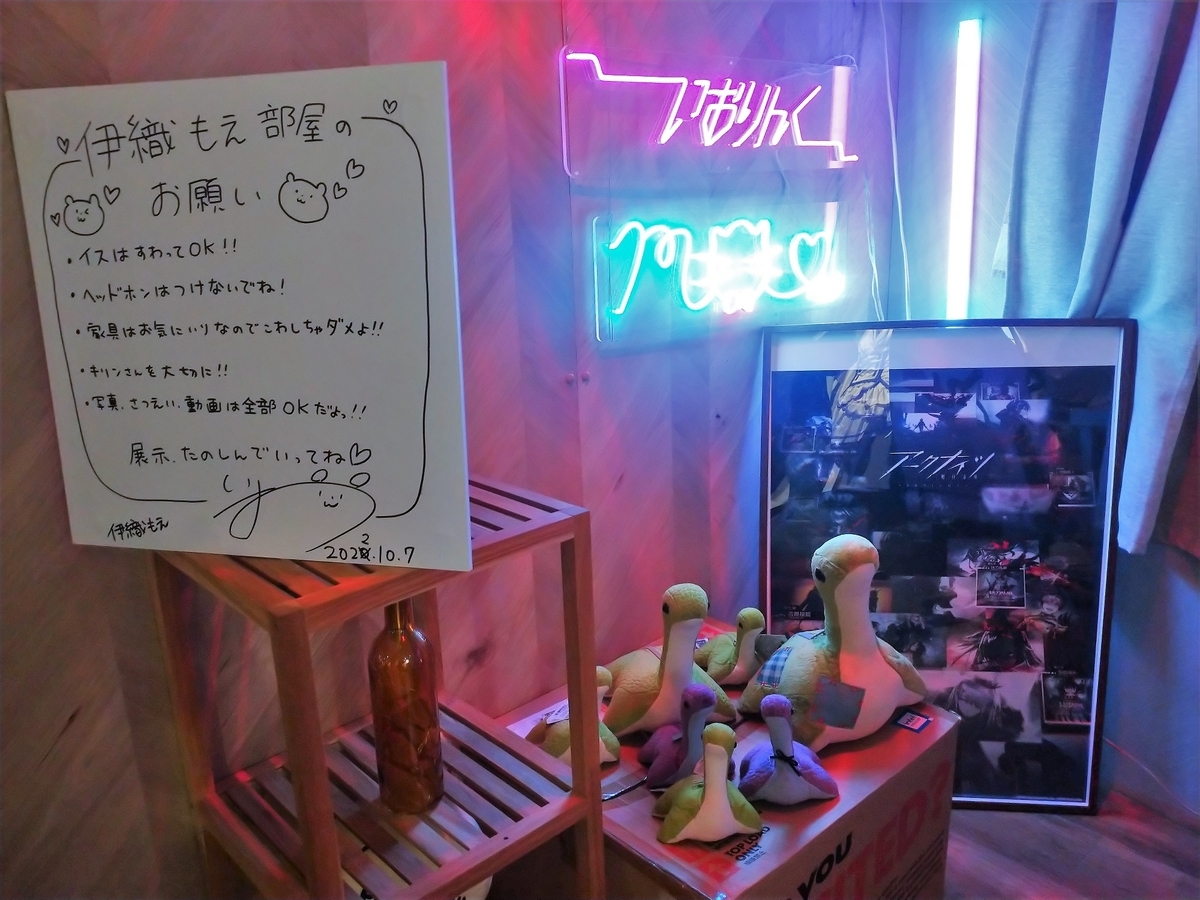 伊織もえ部屋の
お願い
・イスはすわってOK!!
・ヘッドホンはつけないでね!
・家具はお気にいりなのでこわしちゃダメよ!!
・キリンさんを大切に!!
・写真、さつえい、動画は全部OKだよっ!!
展示、たのしんでいってね♡
伊織もえ
2022.10.7
いおりんく
アークナイツ
TOP LOAD
ONLY
YOU